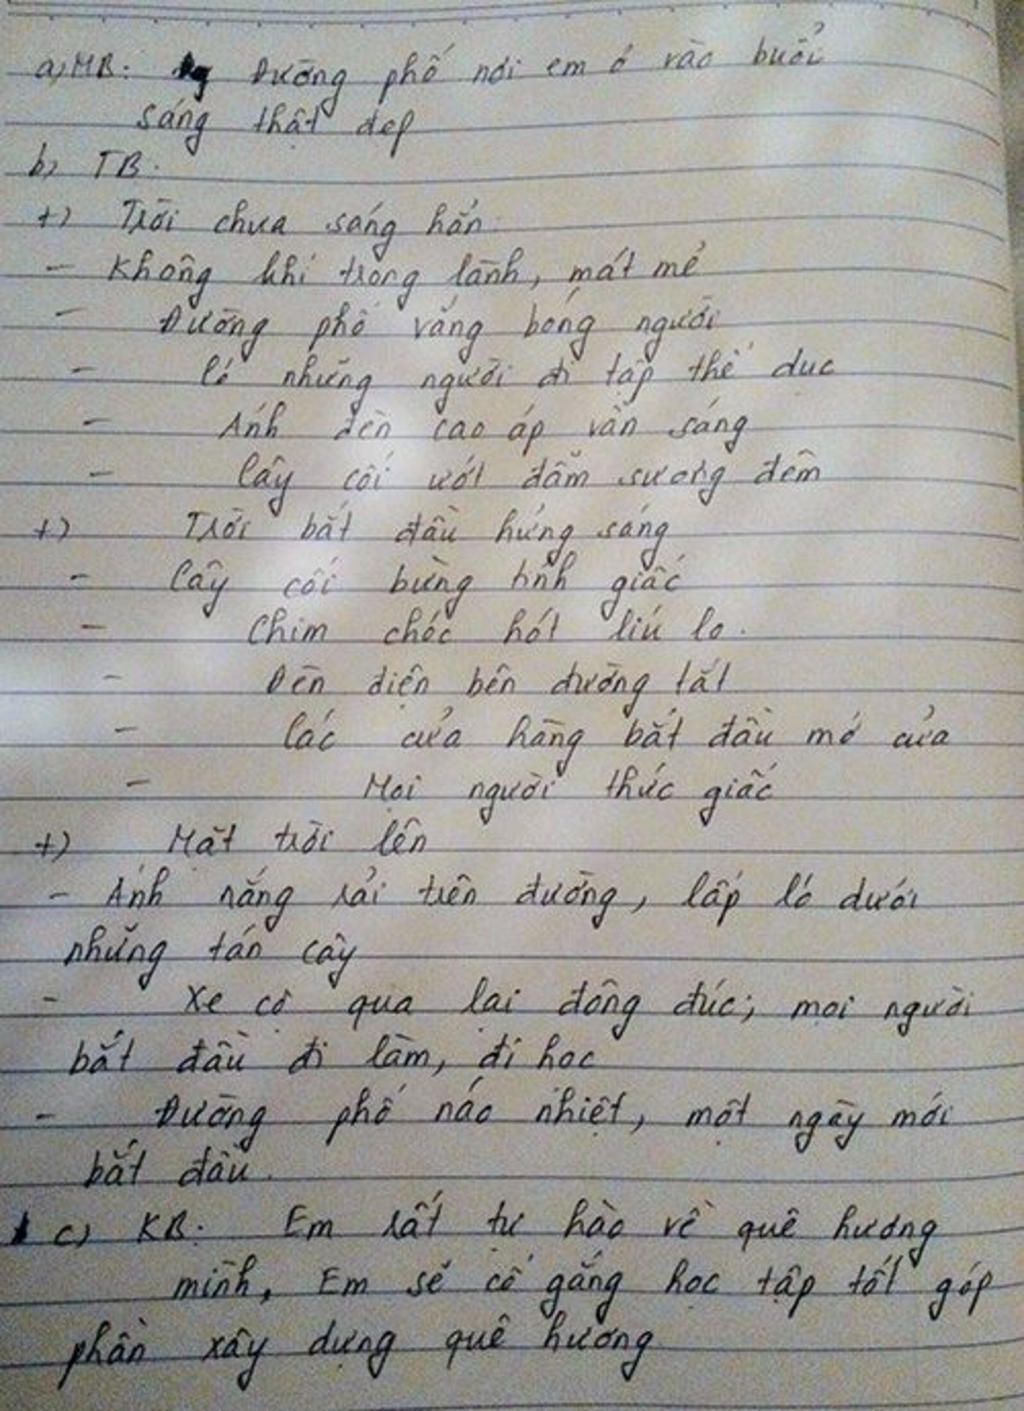 a) MB: Đường phố nơi em ở vào buổi
sáng thật đẹp
b) TB.
+) Trời chưa sáng hẳn.
- Không khí trong lành, mát mẻ
- Đường phố vắng bóng người
- Có những người đi tập thể dục
- Ánh đèn cao áp vẫn sáng
- Cây cối ướt đẫm sương đêm
+) Trời bắt đầu hửng sáng
- Cây cối bừng tỉnh giấc
- Chim chóc hót líu lo.
- Đèn điện bên đường tắt
- Các cửa hàng bắt đầu mở cửa
- Mọi người thức giấc
+) Mặt trời lên
- Ánh nắng rải trên đường, lấp ló dưới
những tán cây
- Xe cộ qua lại đông đúc; mọi người
bắt đầu đi làm, đi học
- Đường phố náo nhiệt, một ngày mới
bắt đầu.
c) KB: Em rất tự hào về quê hương
mình, Em sẽ cố gắng học tập tốt góp
phần xây dựng quê hương